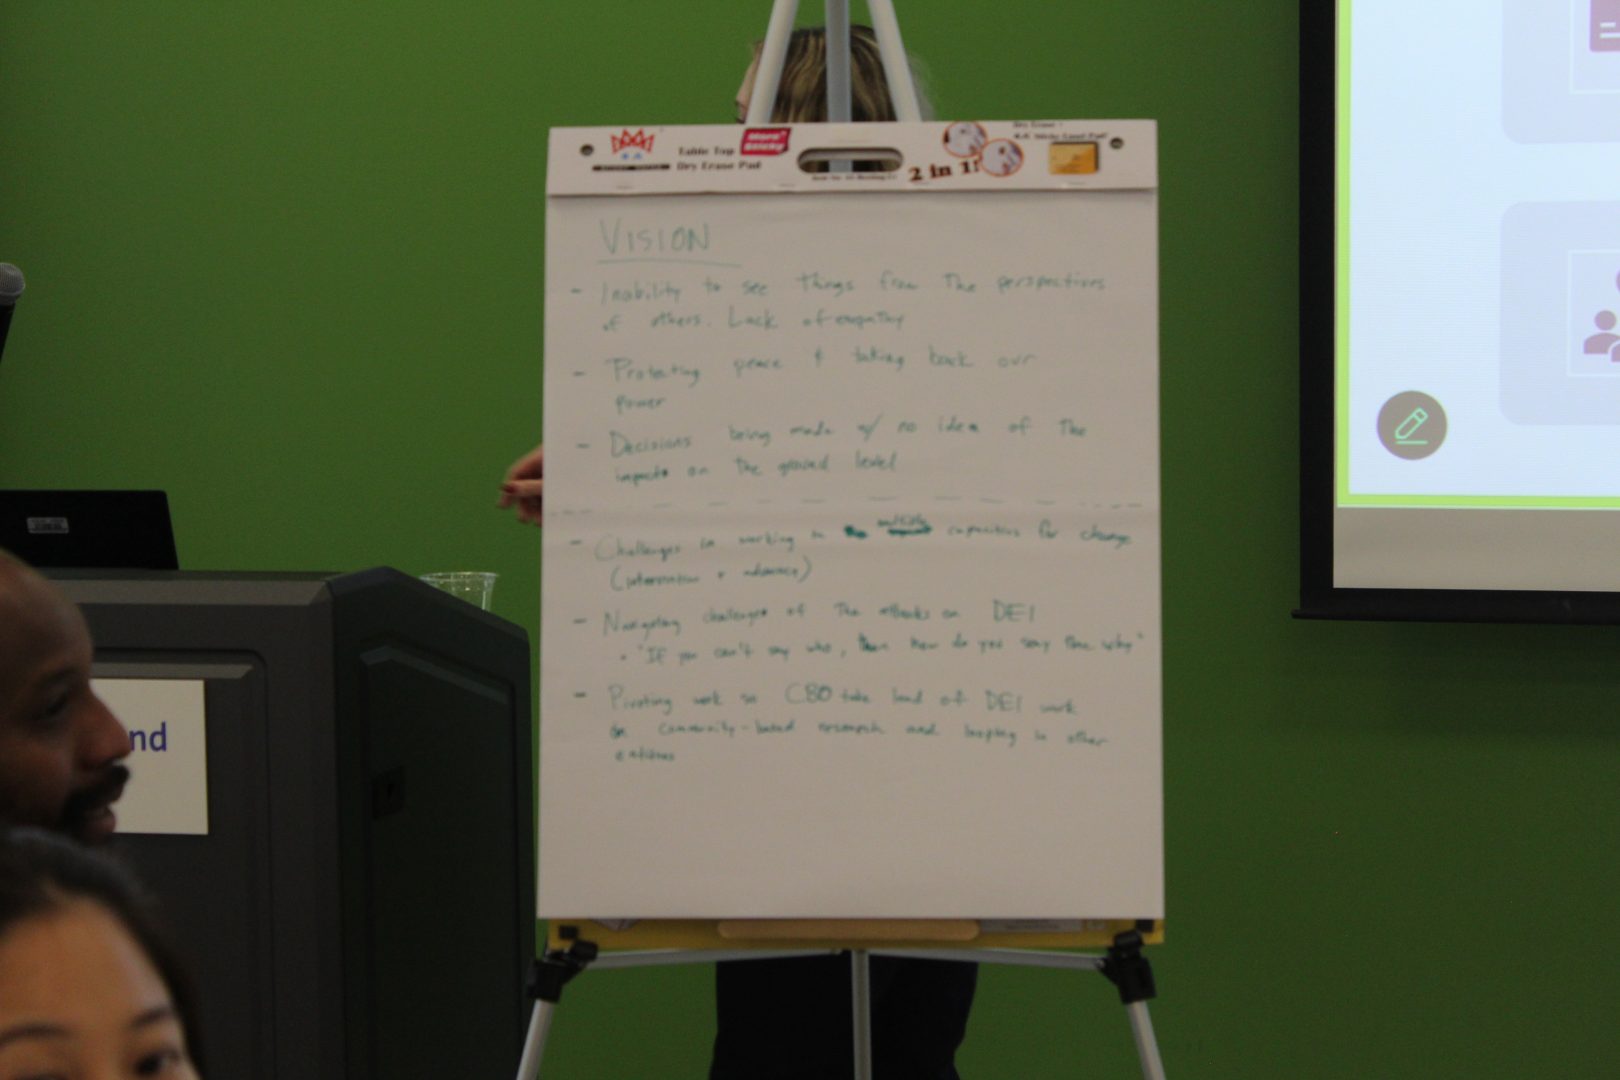 Table Top
Dry Erase Pad
More Sticky
2 in 1!
VISION
- Inability to see things from the perspectives
of others. Lack of empathy
- Protecting peace & taking back our
power
- Decisions being made w/ no idea of the
impacts on the ground level
- Challenges in working in multiple capacities for change
(intervention + advocacy)
- Navigating challenges of the attacks on DEI
• "If you can't say who, then how do you say the why"
- Pivoting work so CBO take lead of DEI work
in community-based research and looping in other
entities
nd